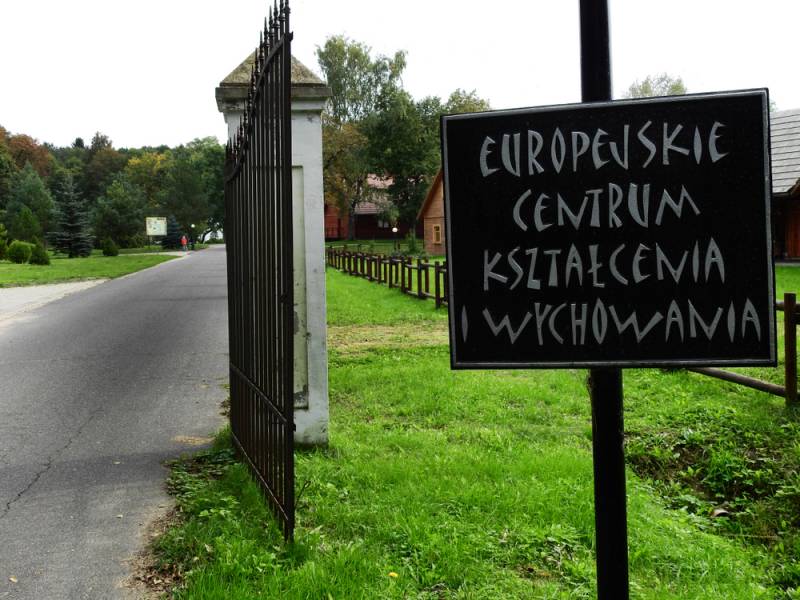 EUROPEJSKIE
CENTRUM
KSZTAŁCENIA
I WYCHOWANIA